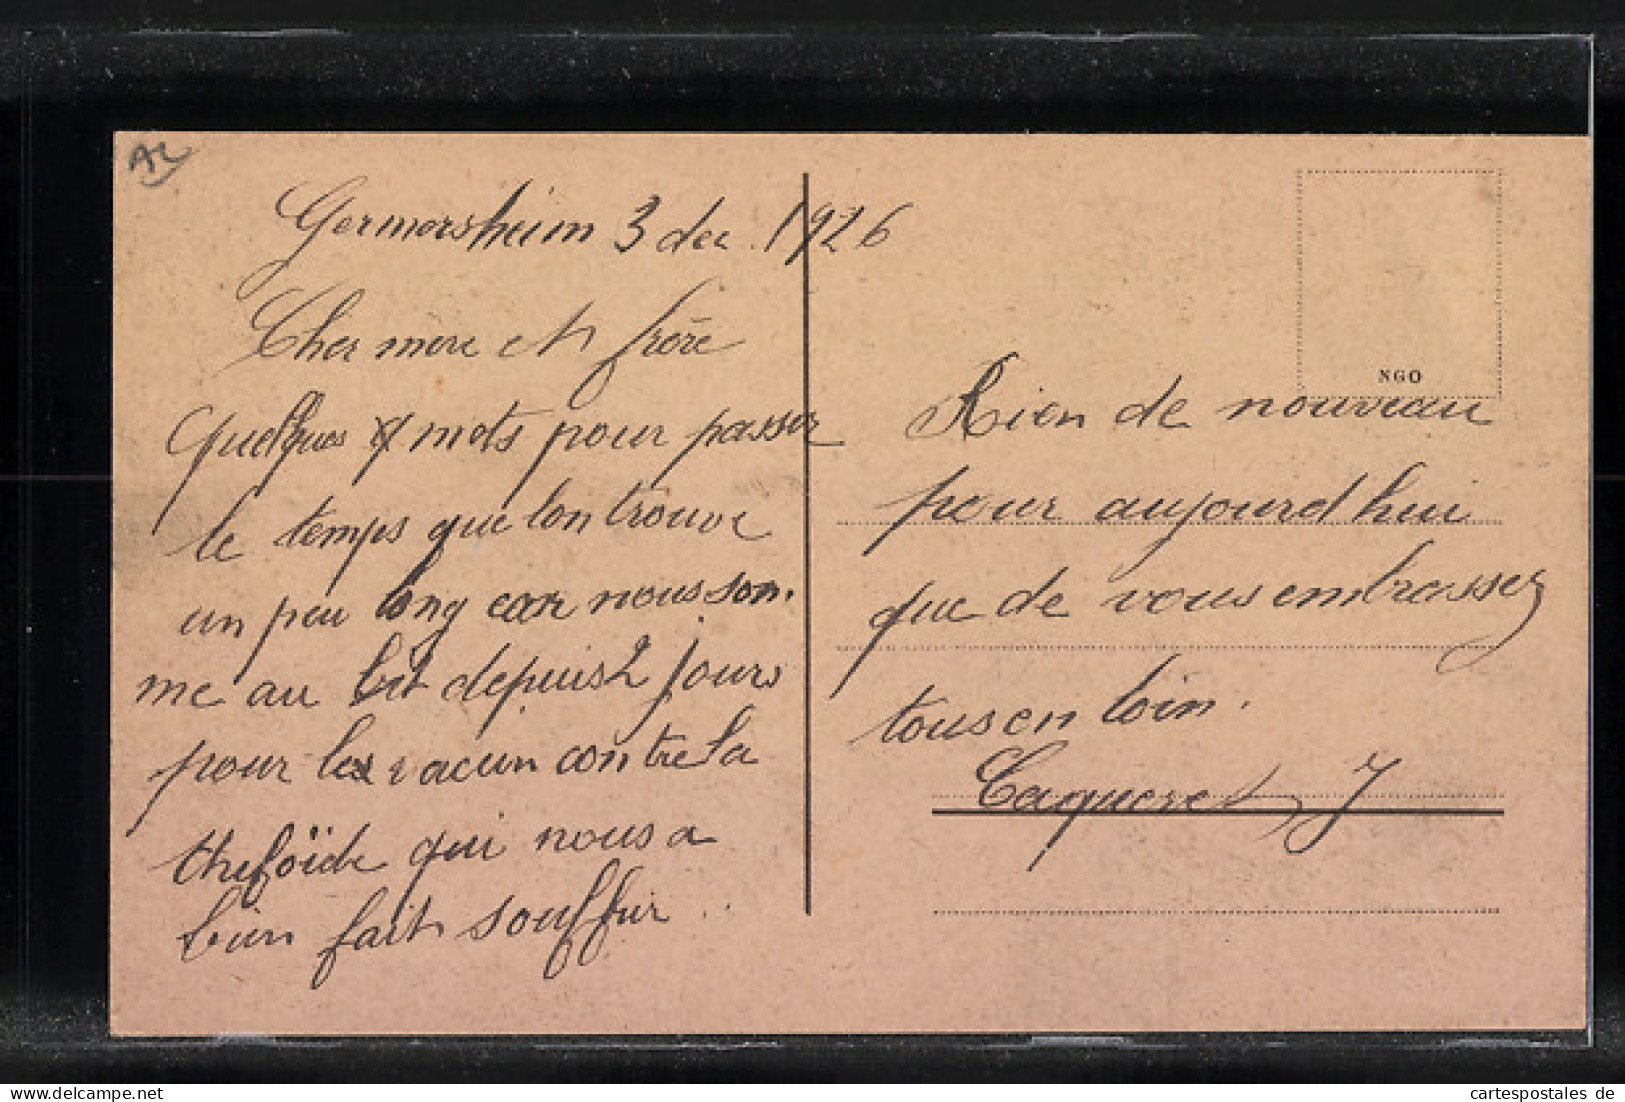 Germersheim 3 dec. 1926
Cher mere et frère
quelques mots pour passer
le temps que lon trouve
un peu long car nous som.
me au lit depuis 2 jours
pour le vacun contre la
thefoïde qui nous a
bien fait souffrir ..
NGO
Rien de nouveau
pour aujourd hui
que de vous embrassez
tous en loin.
Caqueret J
cartespostales de